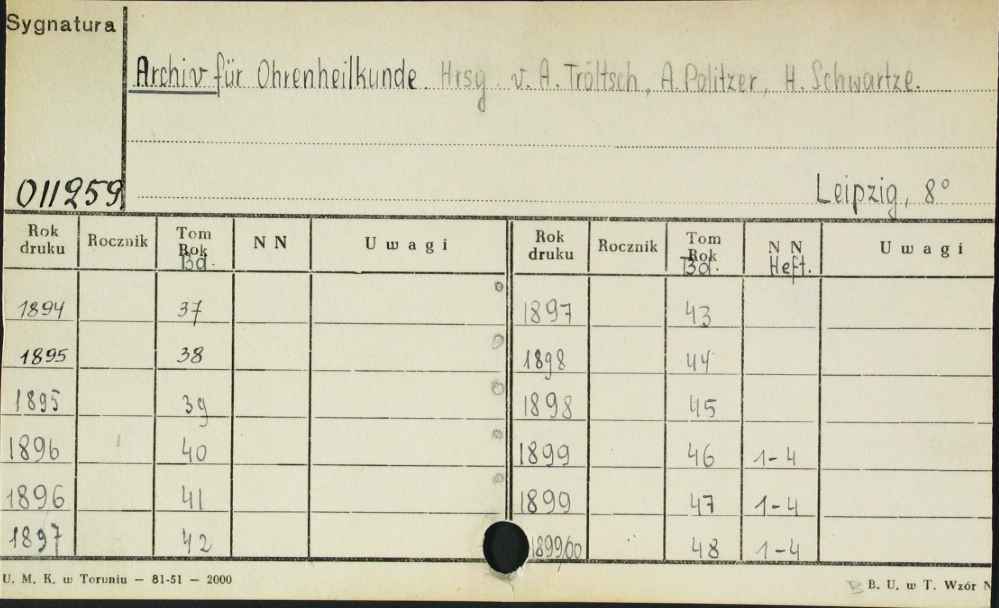 Sygnatura
Archiv für Ohrenheilkunde. Hrsg. v. A. Tröltsch, A. Politzer, H. Schwartze.
011259
Leipzig, 8°
Rok druku Rocznik Tom Rok Bd. N N Uwagi Rok druku Rocznik Tom Rok Bd. N N Heft. Uwagi
1894 37 1897 43
1895 38 1898 44
1895 39 1898 45
1896 40 1899 46 1-4
1896 41 1899 47 1-4
1897 42 1899/00 48 1-4
U. M. K. w Toruniu — 81-51 — 2000
B. U. w T. Wzór N